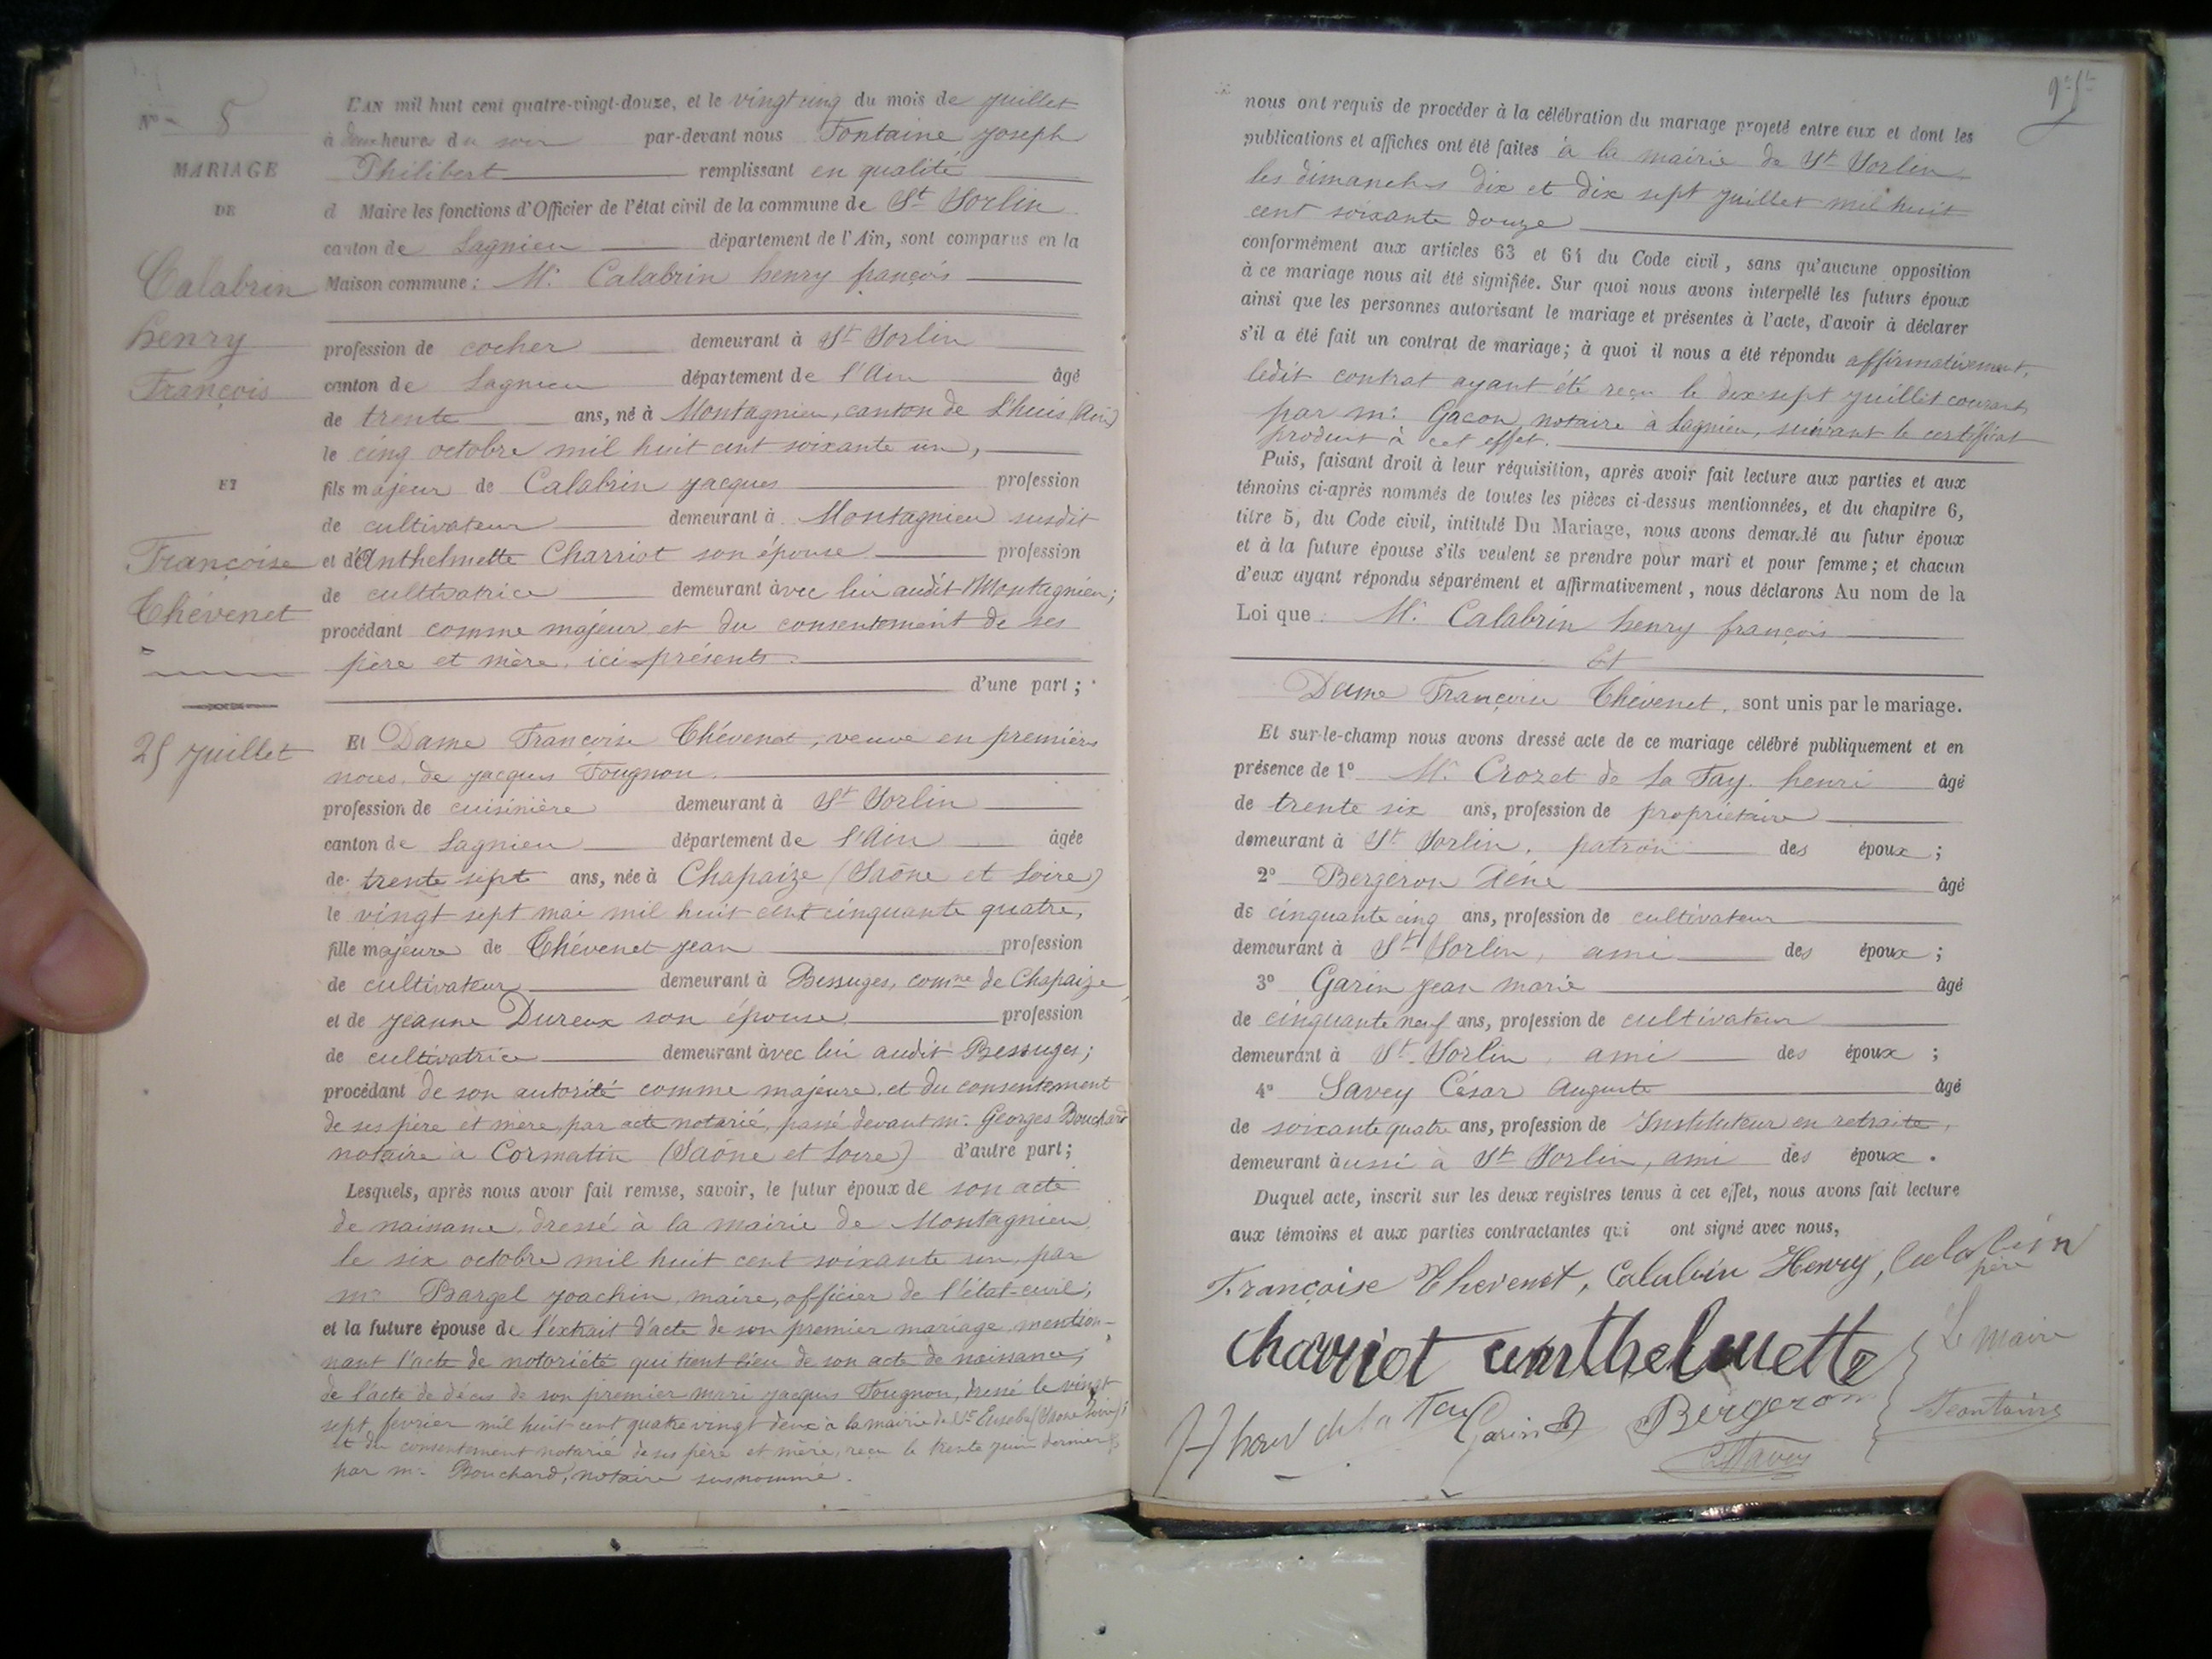 N° 5
MARIAGE
DE
Calabrin
henry
François
ET
Françoise
Thévenet
25 Juillet
L'AN mil huit cent quatre-vingt-douze, et le vingt cinq du mois de juillet
à deux heures du soir par-devant nous Fontaine Joseph
Philibert remplissant en qualité
d Maire les fonctions d'Officier de l'état civil de la commune de St Sorlin
canton de Lagnieu département de l'Ain, sont comparus en la
Maison commune : Mr Calabrin henry françois
profession de cocher demeurant à St Sorlin
canton de Lagnieu département de l'Ain âgé
de trente ans, né à Montagnieu, canton de L'huis (Ain)
le cinq octobre mil huit cent soixante un,
fils majeur de Calabrin jacques profession
de cultivateur demeurant à Montagnieu susdit
et d'Anthelmette Charriot son épouse profession
de cultivatrice demeurant avec lui audit Montagnieu;
procédant comme majeur et du consentement de ses
père et mère, ici présents.
d'une part ;
Et Dame Françoise Thévenet, veuve en premières
noces, de jacques Fougnon.
profession de cuisinière demeurant à St Sorlin
canton de Lagnieu département de l'Ain âgée
de trente sept ans, née à Chapaize (Saône et Loire)
le vingt sept mai mil huit cent cinquante quatre,
fille majeure de Thévenet jean profession
de cultivateur demeurant à Bessuges, comne de Chapaize
et de jeanne Dureux son épouse profession
de cultivatrice demeurant avec lui audit Bessuges;
procédant de son autorité comme majeure, et du consentement
de ses père et mère, par acte notarié, passé devant me Georges Bouchard
notaire à Cormatin (Saône et Loire) d'autre part ;
Lesquels, après nous avoir fait remise, savoir, le futur époux de son acte
de naissance, dressé à la mairie de Montagnieu,
le six octobre mil huit cent soixante un, par
mr Bargel joachin, maire, officier de l'état-civil;
et la future épouse de l'extrait d'acte de son premier mariage, mention-
nant l'acte de notoriété qui tient lieu de son acte de naissance;
de l'acte de décès de son premier mari jacques Fougnon, dressé le vingt
sept fevrier mil huit cent quatre vingt deux à la mairie de St Eusebe (Saône Loire);
et du consentement notarié de ses père et mère, reçu le trente juin dernier
par me Bouchard, notaire susnommé.
nous ont requis de procéder à la célébration du mariage projeté entre eux et dont les
publications et affiches ont été faites à la mairie de St Sorlin
les dimanches dix et dix sept juillet mil huit
cent soixante douze
conformément aux articles 63 et 64 du Code civil, sans qu'aucune opposition
à ce mariage nous ait été signifiée. Sur quoi nous avons interpellé les futurs époux
ainsi que les personnes autorisant le mariage et présentes à l'acte, d'avoir à déclarer
s'il a été fait un contrat de mariage ; à quoi il nous a été répondu affirmativement,
ledit contrat ayant été reçu le dix-sept juillet courant
par me Gacon, notaire à Lagnieu, suivant le certificat
produit à cet effet.
Puis, faisant droit à leur réquisition, après avoir fait lecture aux parties et aux
témoins ci-après nommés de toutes les pièces ci-dessus mentionnées, et du chapitre 6,
titre 5, du Code civil, intitulé Du Mariage, nous avons demandé au futur époux
et à la future épouse s'ils veulent se prendre pour mari et pour femme ; et chacun
d'eux ayant répondu séparément et affirmativement, nous déclarons Au nom de la
Loi que Mr Calabrin henry françois
Et
Dame Françoise Thévenet, sont unis par le mariage.
Et sur-le-champ nous avons dressé acte de ce mariage célébré publiquement et en
présence de 1° Mr Crozet de La Fay henri âgé
de trente six ans, profession de propriétaire
demeurant à St Sorlin, patron des époux ;
2° Bergeron Aéné âgé
de cinquante cinq ans, profession de cultivateur
demeurant à St Sorlin, ami des époux ;
3° Garin jean marie âgé
de cinquante neuf ans, profession de cultivateur
demeurant à St Sorlin, ami des époux ;
4° Savey César Auguste âgé
de soixante quatre ans, profession de Instituteur en retraite,
demeurant aussi à St Sorlin, ami des époux.
Duquel acte, inscrit sur les deux registres tenus à cet effet, nous avons fait lecture
aux témoins et aux parties contractantes qui ont signé avec nous,
Françoise Thevenet, Calabrin Henry, Calabrin
père
charriot anthelmette
Le Maire
de la Fay Garin Bergeron Fontaine
Savey